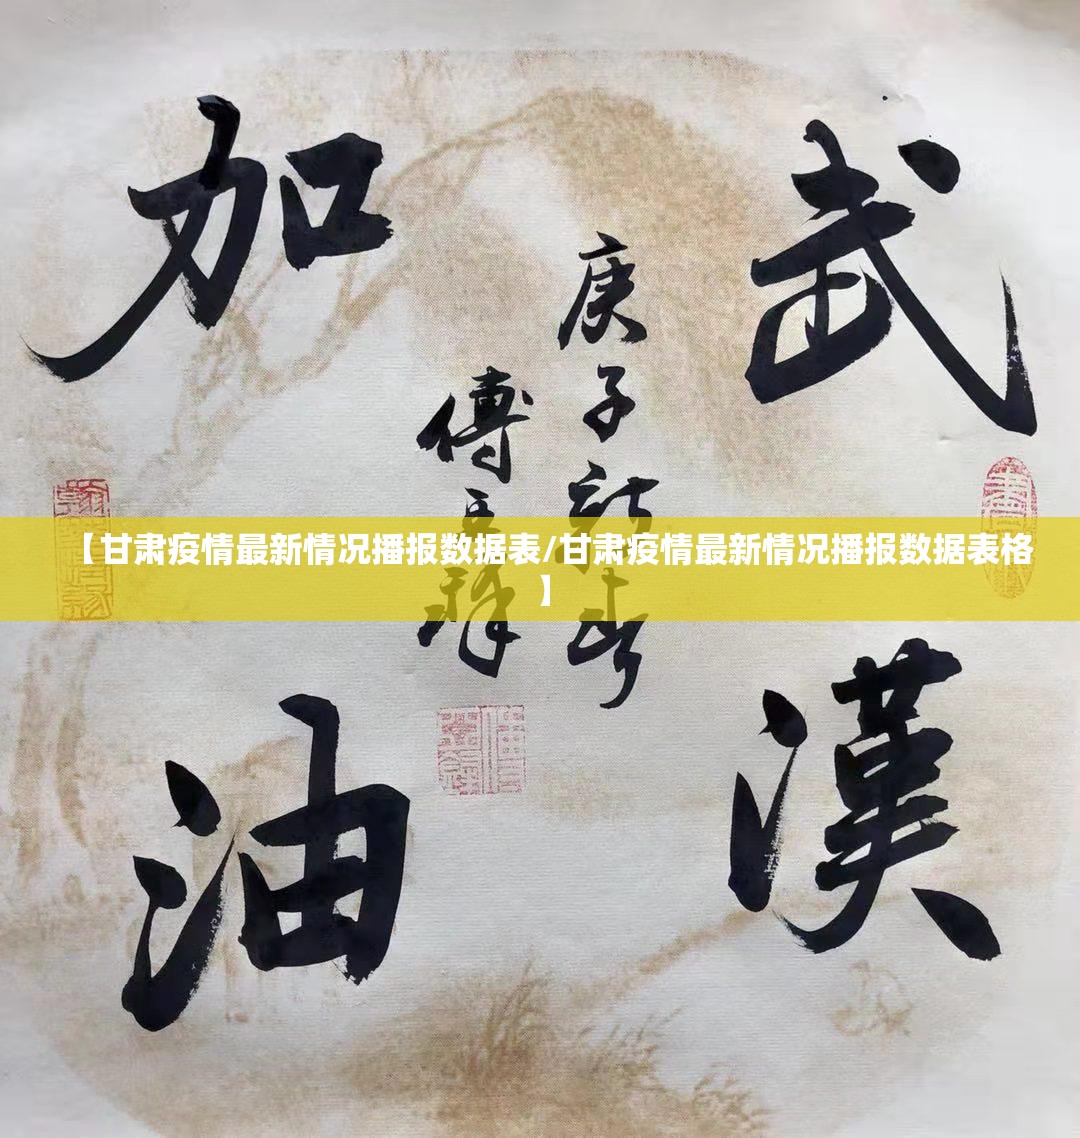 武漢
加油
庚子新春
傅
【甘肃疫情最新情况播报数据表/甘肃疫情最新情况播报数据表格
】